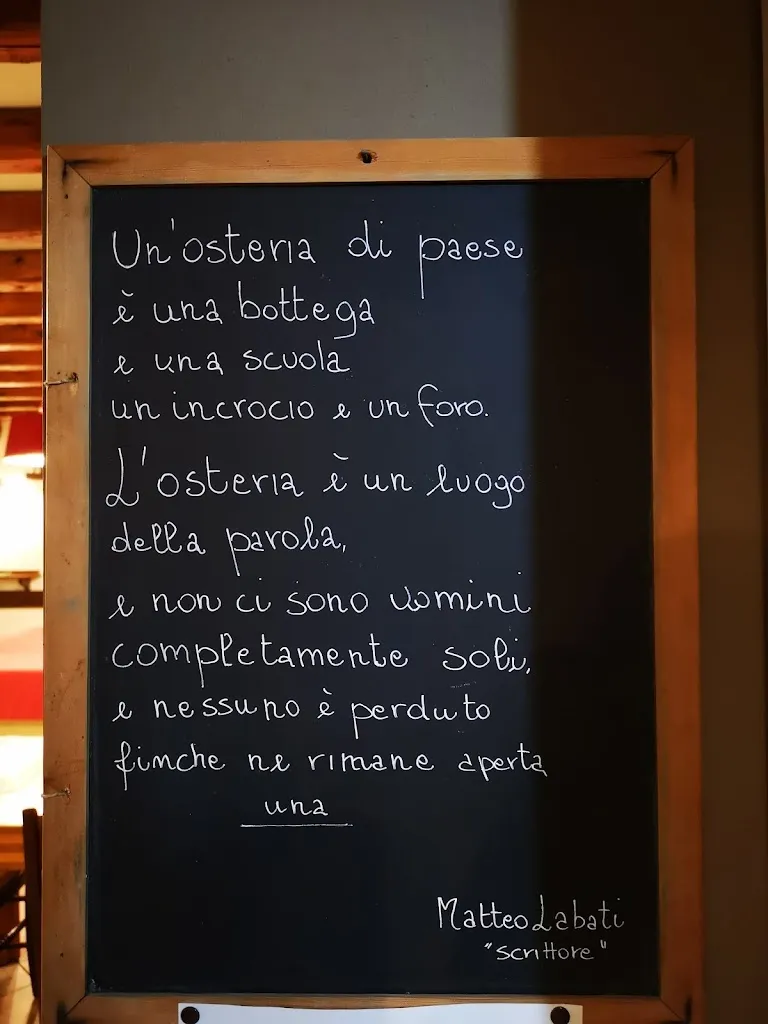 Un'osteria di paese
è una bottega
e una scuola
un incrocio e un foro.
L'osteria è un luogo
della parola,
e non ci sono uomini
completamente soli,
e nessuno è perduto
finche ne rimane aperta
una
Matteo Labati
"scrittore"